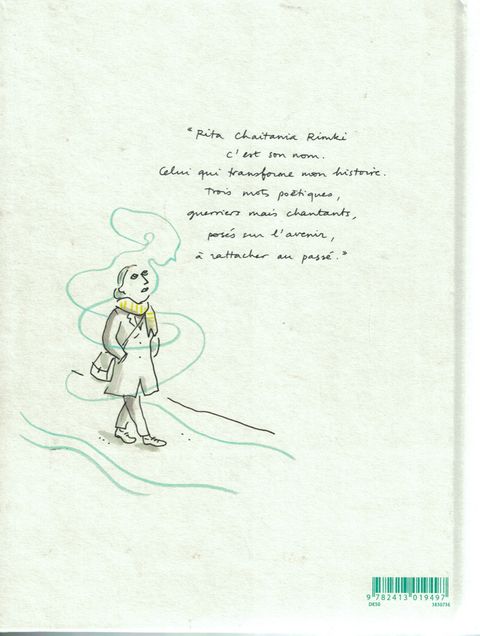 "Rita Chaitania Rimki
c'est son nom.
Celui qui transforme mon histoire.
Trois mots poétiques,
guerriers mais chantants,
posés sur l'avenir,
à rattacher au passé."
9 782413 019497
DK50 3850736